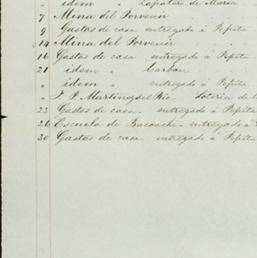 " idem " Zapateri de Maria
7 Mina del Porvenir
9 Gastos de casa entregado à Pepita
14 Mina del Porvenir
16 Gastos de casa entregado à Pepita
21 idem " Carbon
" idem " entregado à Pepita
" J. P. Martinez del Rio. Loteria de
23 Gastos de casa entregado à Pepita
26 Escuela de Bacoachi entregado à
30 Gastos de casa entregado à Pepita